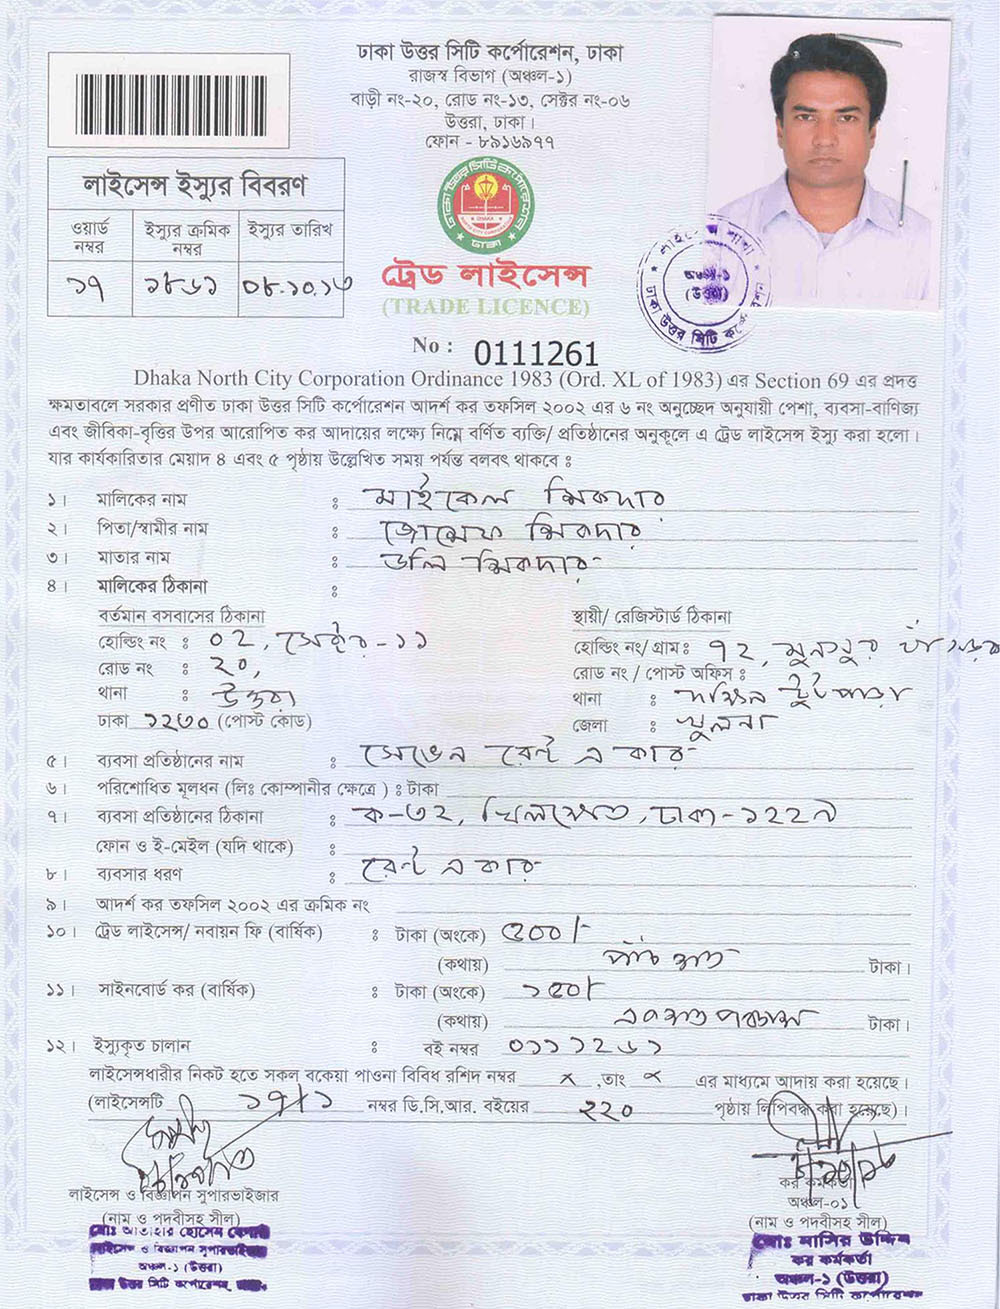 ঢাকা উত্তর সিটি কর্পোরেশন, ঢাকা
রাজস্ব বিভাগ (অঞ্চল-১)
বাড়ী নং-২০, রোড নং-১৩, সেক্টর নং-০৬
উত্তরা, ঢাকা।
ফোন - ৮৯১৬৯৭৭
লাইসেন্স ইস্যুর বিবরণ
ওয়ার্ড নম্বর ইস্যুর ক্রমিক নম্বর ইস্যুর তারিখ
১৭ ১৮৬১ ০৮.১০.১৩
ঢাকা উত্তর সিটি কর্পোরেশন
DHAKA
NORTH CITY CORPORATION
ঢাকা
ট্রেড লাইসেন্স
(TRADE LICENCE)
লাইসেন্স শাখা
অঞ্চল-১
(উত্তরা)
ঢাকা উত্তর সিটি কর্পোরেশন
No : 0111261
Dhaka North City Corporation Ordinance 1983 (Ord. XL of 1983) এর Section 69 এর প্রদত্ত
ক্ষমতাবলে সরকার প্রণীত ঢাকা উত্তর সিটি কর্পোরেশন আদর্শ কর তফসিল ২০০২ এর ৬ নং অনুচ্ছেদ অনুযায়ী পেশা, ব্যবসা-বাণিজ্য
এবং জীবিকা-বৃত্তির উপর আরোপিত কর আদায়ের লক্ষ্যে নিম্নে বর্ণিত ব্যক্তি/ প্রতিষ্ঠানের অনুকূলে এ ট্রেড লাইসেন্স ইস্যু করা হলো।
যার কার্যকারিতার মেয়াদ ৪ এবং ৫ পৃষ্ঠায় উল্লেখিত সময় পর্যন্ত বলবৎ থাকবে ঃ
১। মালিকের নাম ঃ মাইকেল শিকদার
২। পিতা/স্বামীর নাম ঃ জোসেফ শিকদার
৩। মাতার নাম ঃ ডলি শিকদার
৪। মালিকের ঠিকানা ঃ
বর্তমান বসবাসের ঠিকানা স্থায়ী/ রেজিস্টার্ড ঠিকানা
হোল্ডিং নং ঃ ০২, সেক্টর-১১ হোল্ডিং নং/ গ্রাম ঃ ৭২,
রোড নং ঃ ২০, রোড নং / পোস্ট অফিস ঃ
থানা ঃ উত্তরা থানা ঃ
ঢাকা ১২৩০ (পোস্ট কোড) জেলা ঃ খুলনা
৫। ব্যবসা প্রতিষ্ঠানের নাম ঃ সেভেন রেন্ট এ কার
৬। পরিশোধিত মূলধন (লিঃ কোম্পানীর ক্ষেত্রে ) ঃ টাকা
৭। ব্যবসা প্রতিষ্ঠানের ঠিকানা ঃ ক-৩২, খিলক্ষেত, ঢাকা-১২২৯
ফোন ও ই-মেইল (যদি থাকে) ঃ
৮। ব্যবসার ধরণ ঃ রেন্ট এ কার
৯। আদর্শ কর তফসিল ২০০২ এর ক্রমিক নং
১০। ট্রেড লাইসেন্স/ নবায়ন ফি (বার্ষিক) ঃ টাকা (অংকে) ৫০০/-
(কথায়) পাঁচ শত টাকা।
১১। সাইনবোর্ড কর (বার্ষিক) ঃ টাকা (অংকে) ১৫০/-
(কথায়) একশত পঞ্চাশ টাকা।
১২। ইস্যুকৃত চালান ঃ বই নম্বর ০১১১২৬১
লাইসেন্সধারীর নিকট হতে সকল বকেয়া পাওনা বিবিধ রশিদ নম্বর x ,তাং x এর মাধ্যমে আদায় করা হয়েছে।
(লাইসেন্সটি ১৭/১ নম্বর ডি.সি.আর. বইয়ের ২২০ পৃষ্ঠায় লিপিবদ্ধ করা হয়েছে)।
লাইসেন্স ও বিজ্ঞাপন সুপারভাইজার
(নাম ও পদবীসহ সীল)
মোঃ আতাহার হোসেন
লাইসেন্স ও বিজ্ঞাপন সুপারভাইজার
অঞ্চল-১ (উত্তরা)
ঢাকা উত্তর সিটি কর্পোরেশন, ঢাকা
কর কর্মকর্তা
অঞ্চল-০১
(নাম ও পদবীসহ সীল)
মোঃ নাসির উদ্দিন
কর কর্মকর্তা
অঞ্চল-১ (উত্তরা)
ঢাকা উত্তর সিটি কর্পোরেশন